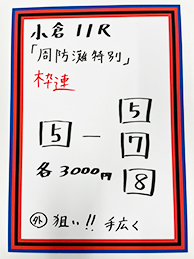 小倉11R
「周防灘特別」
枠連
5
5 － 7
各3000円 8
外 狙い!! 手広く